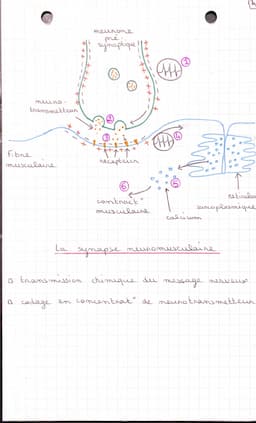 neurone
pré
synaptique
①
neuro-
transmetteur
②
③
④
récepteur
fibre
musculaire
⑥
⑤
contract°
musculaire
calcium
réticulum
sarcoplasmique
La synapse neuromusculaire
transmission chimique du message nerveux
codage en concentrat° de neurotransmetteur